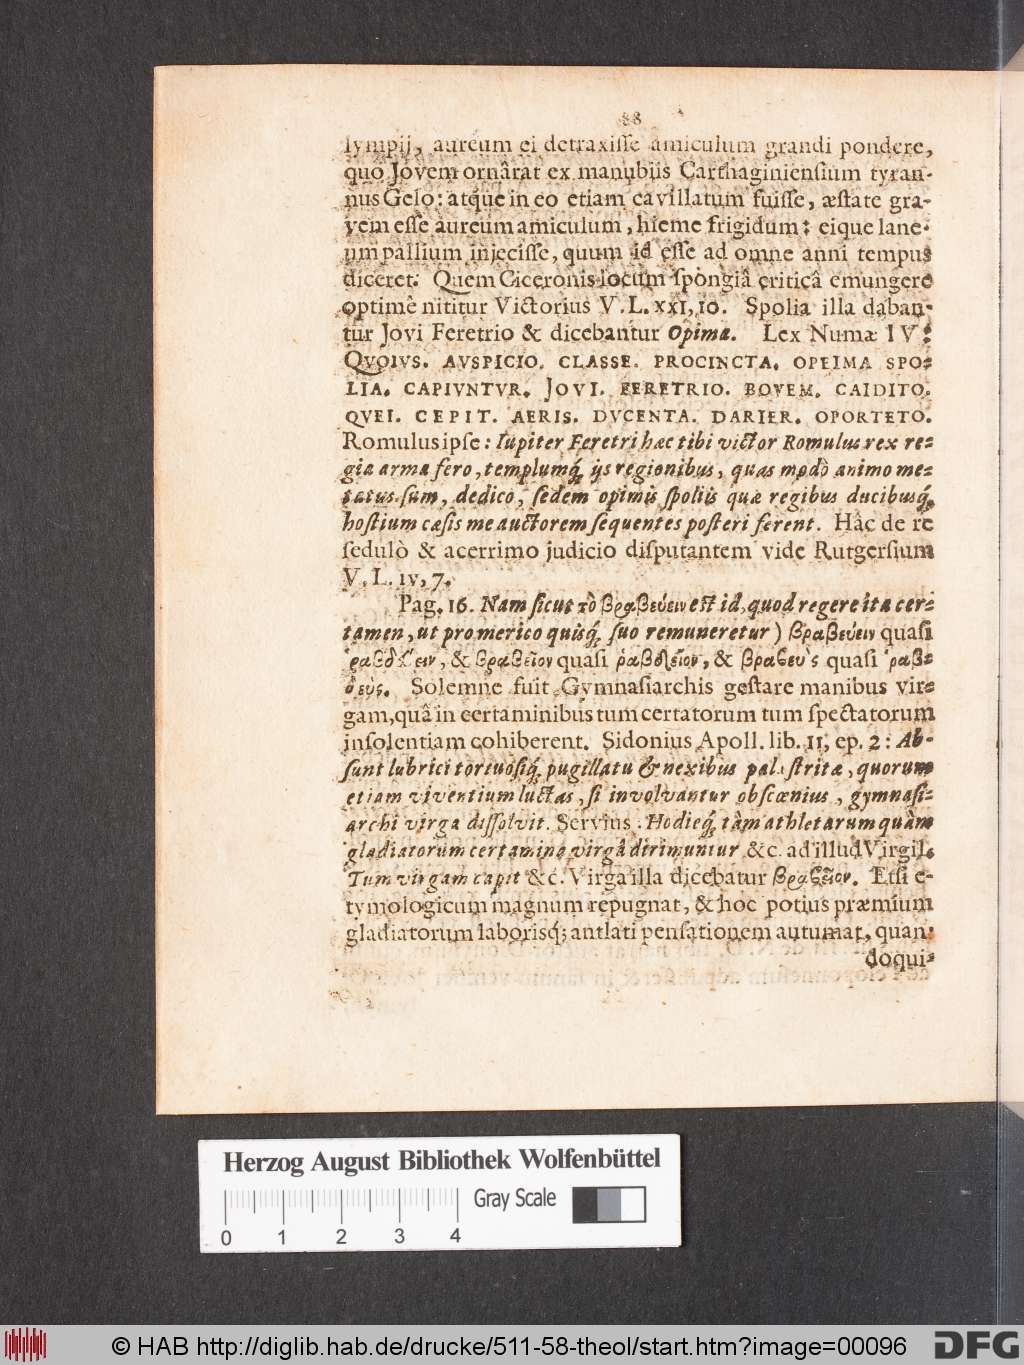 88
lympij, aureum ei detraxiſſe amiculum grandi pondere,
quo Jovem ornârat ex manubiis Carthaginienſium tyran-
nus Gelo: atque in eo etiam cavillatum fuiſſe, æſtate gra-
vem eſſe aureum amiculum, hieme frigidum: eique lane-
um pallium injeciſſe, quum id eſſe ad omne anni tempus
diceret. Quem Ciceronis locum ſpongiâ criticâ emungere
optimè nititur Victorius V. L. XXI, 10. Spolia illa daban-
tur Jovi Feretrio & dicebantur Opima. Lex Numæ IV:
QVOIVS. AVSPICIO. CLASSE. PROCINCTA. OPEIMA SPO-
LIA. CAPIVNTVR. JOVI. FERETRIO. BOVEM. CAIDITO.
QVEI. CEPIT. AERIS. DVCENTA. DARIER. OPORTETO.
Romulus ipſe: Iupiter Feretri hæc tibi victor Romulus rex re-
gia arma fero, templumq́; ijs regionibus, quas modò animo me-
tatus ſum, dedico, ſedem opimis ſpoliis quæ regibus ducibusq́;
hoſtium cæſis me auctorem ſequentes poſteri ferent. Hâc de re
ſedulò & acerrimo judicio diſputantem vide Rutgerſium
V. L. IV, 7.
Pag. 16. Nam ſicut τὸ βραβεύειν eſt id, quod regere ita cer-
tamen, ut pro merico quisq́; ſuo remuneretur) βραβεύειν quaſi
ῥαβδεύειν, & βραβεῖον quaſi ῥαβδεῖον, & βραβεὺς quaſi ῥαβ-
δεὺς. Solemne fuit Gymnaſiarchis geſtare manibus vir-
gam, quâ in certaminibus tum certatorum tum ſpectatorum
inſolentiam cohiberent. Sidonius Apoll. lib. 11, ep. 2: Ab-
ſunt lubrici tortuoſiq́; pugillatu & nexibus palæſtritæ, quorum
etiam viventium luctas, ſi involvantur obſcœnius, gymnaſi-
archi virga diſſolvit. Servius. Hodieq́; tàm athletarum quàm
gladiatorum certamina virgâ dirimuntur &c. ad illud Virgil.
Tum virgam capit &c. Virga illa dicebatur βραβεῖον. Etſi e-
tymologicum magnum repugnat, & hoc potius præmium
gladiatorum laborisq́; antlati penſationem autumat, quan-
doqui-
Herzog August Bibliothek Wolfenbüttel
Gray Scale
0 1 2 3 4
© HAB http://diglib.hab.de/drucke/511-58-theol/start.htm?image=00096
DFG